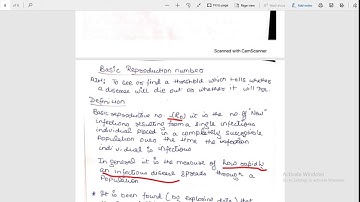 Scanned with CamScanner
Basic Reproduction number
AIM: To see or find a threshold which tells whether
a disease will die out or whether it will
Definition
Basic reproductive no. (R0) it is the no. of "New"
infections resulting from a single infectious
individual placed in a completely susceptible
Population over the time the infection
individual is infectious
In general it is the measure of how rapidly
an infectious disease spreads through a
Population
* It is been found (by exploring data) that
Activate Windows